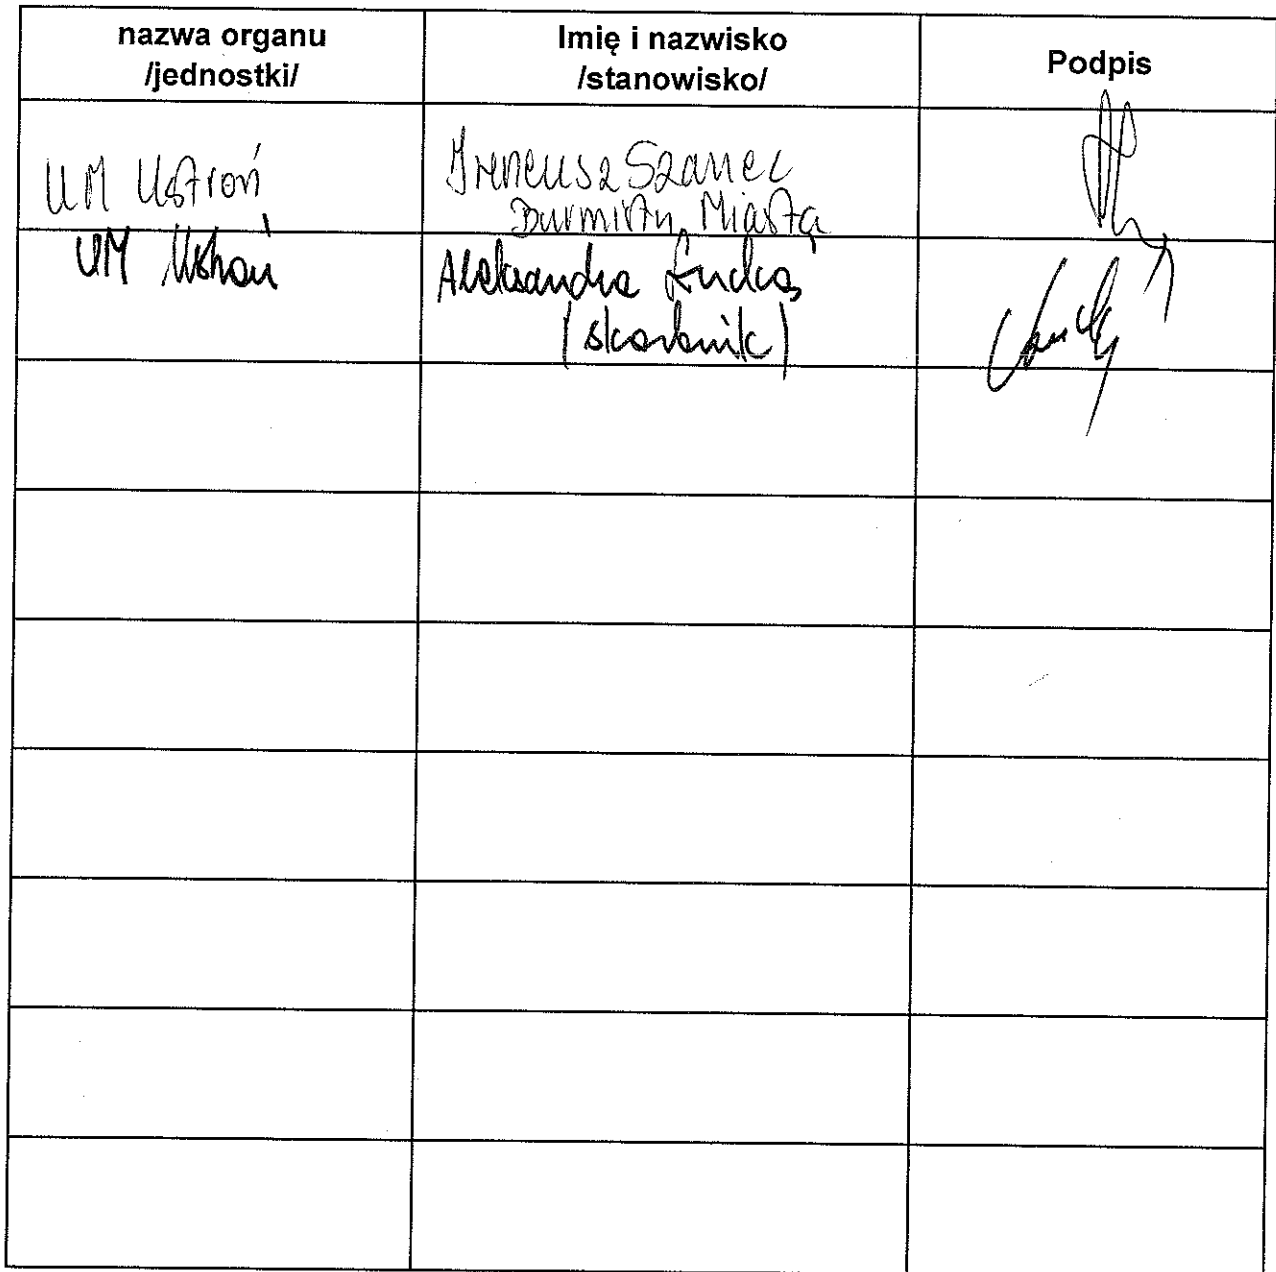 nazwa organu
/jednostki/
Imię i nazwisko
/stanowisko/
Podpis
UM Ustroń
Ireneusz Szarzec
Burmistrz Miasta
UM Ustroń
Aleksandra Łuckoś
(skarbnik)